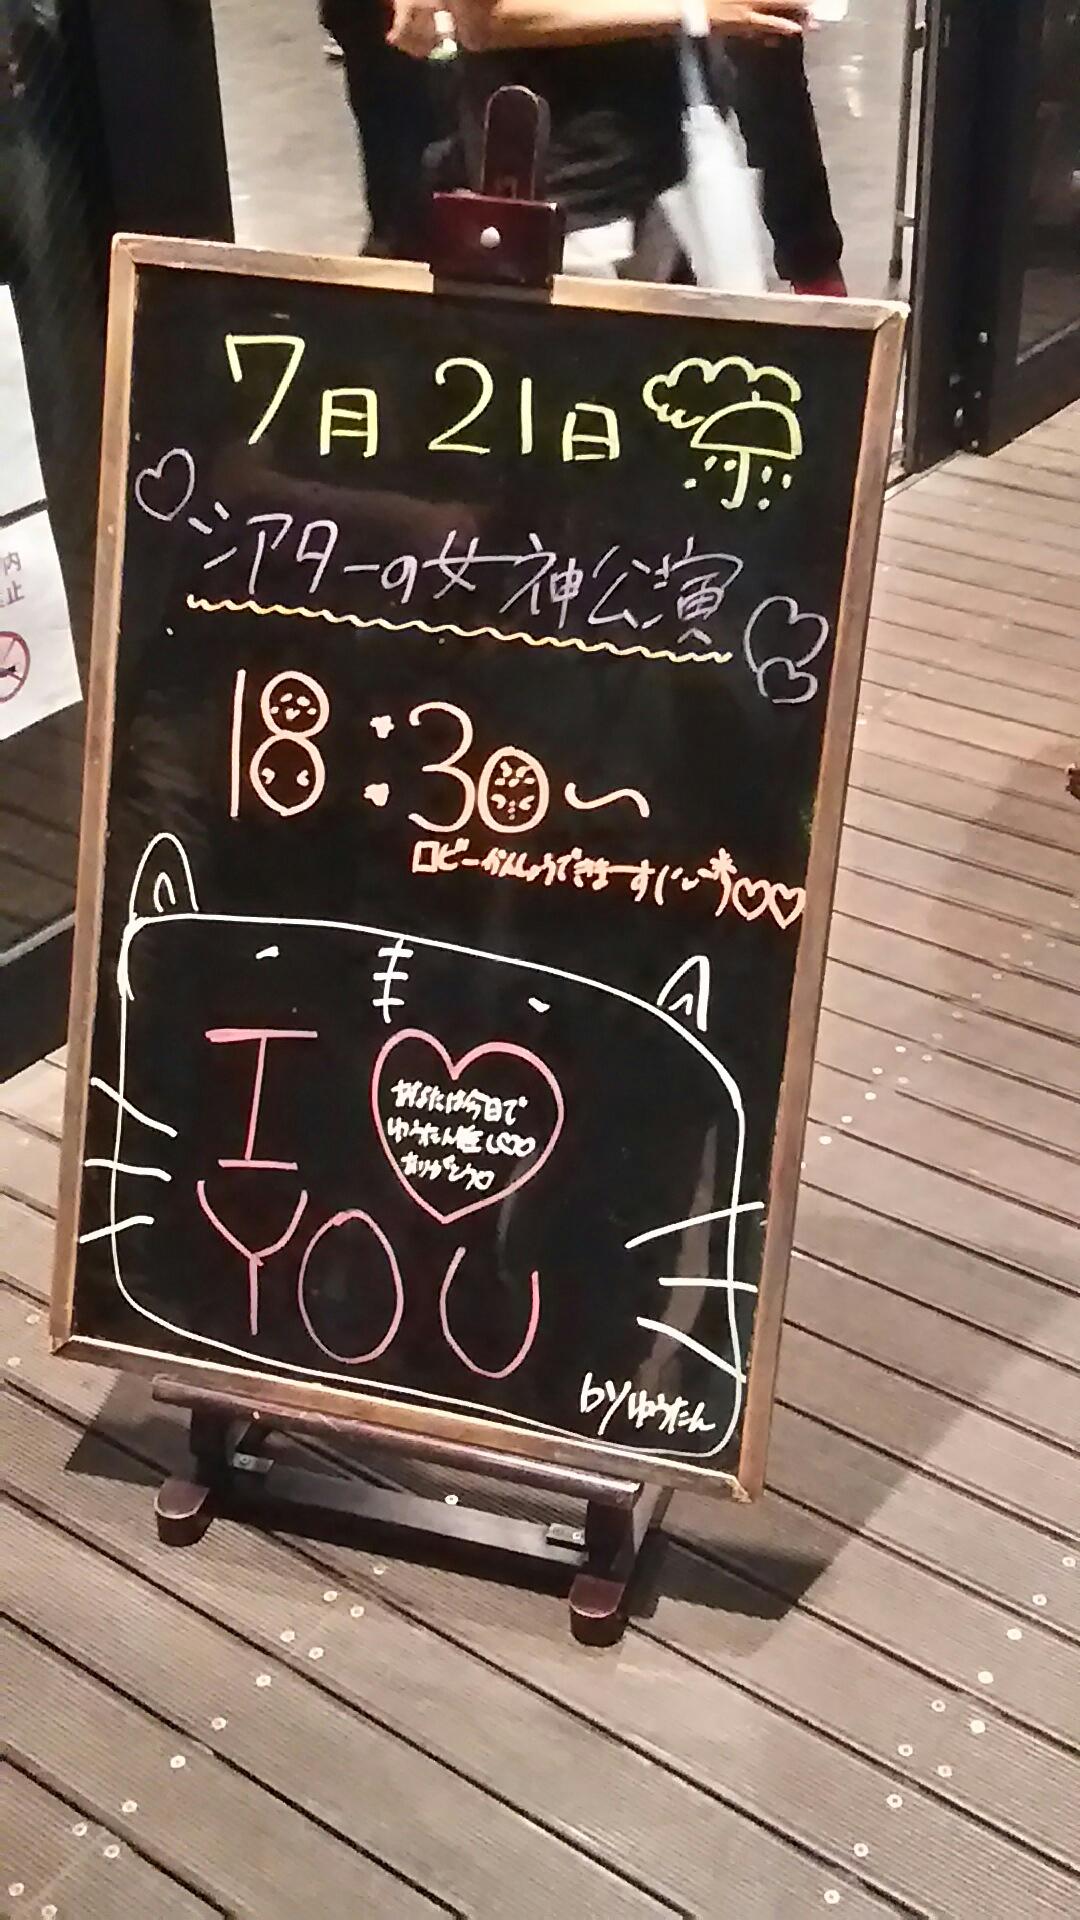 7月21日
シアターの女神公演
18:30〜
ロビーかんしょうできまーす
I
あなたは今日で
ゆうたん推し♡♡
ありがとう♡
YOU
byゆうたん
内
止